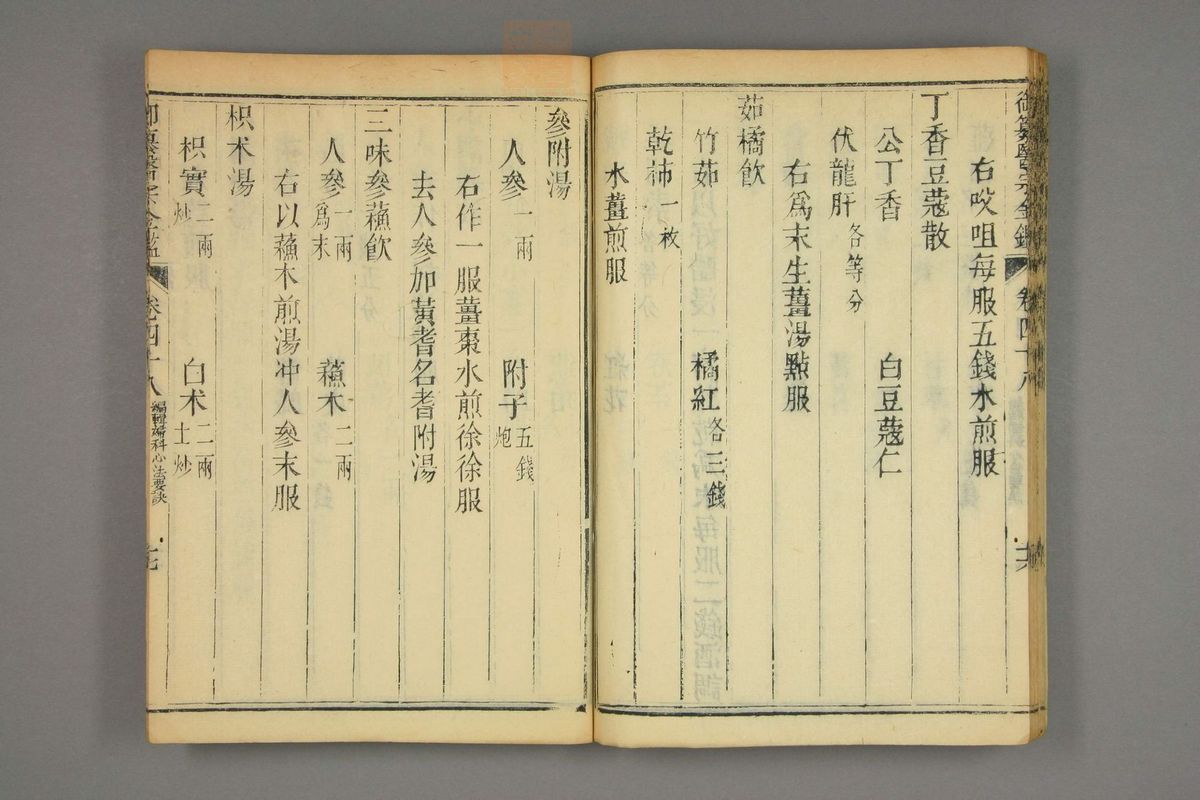 御纂醫宗金鑑 卷四十八
右㕮咀每服五錢水煎服
丁香豆蔻散
公丁香 白豆蔻仁
伏龍肝各等分
右爲末生薑湯點服
茹橘飲
竹茹 橘紅各三錢
乾柿一枚
水薑煎服
參附湯
人參一兩 附子五錢炮
右作一服薑棗水煎徐徐服
去人參加黃耆名耆附湯
三味參蘓飲
人參一兩爲末 蘓木二兩
右以蘓木煎湯冲人參末服
枳术湯
枳實二兩炒 白术二兩土炒
御纂醫宗金鑑 卷四十八 編輯婦科心法要訣